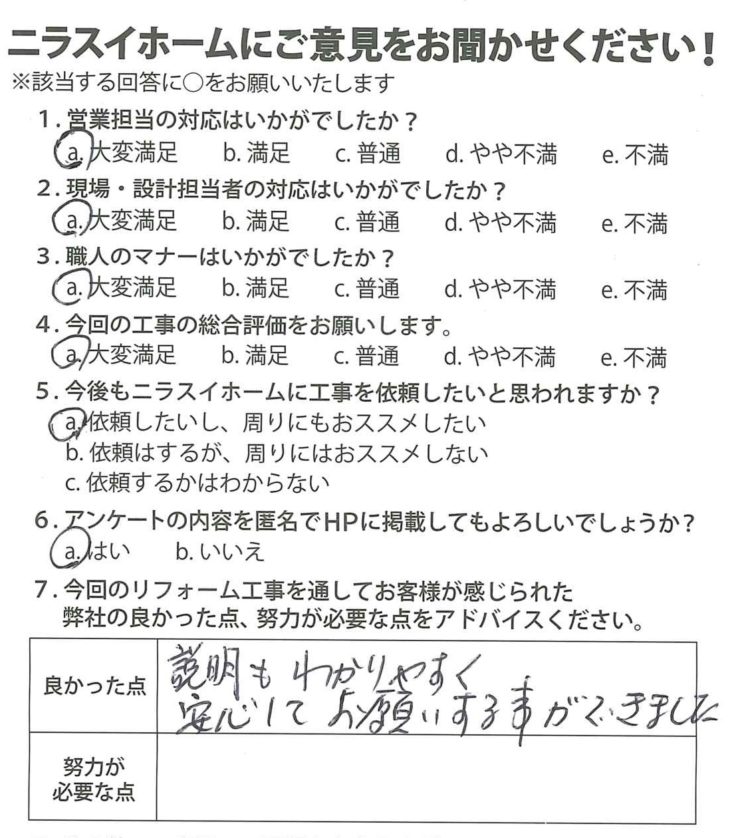 ニラスイホームにご意見をお聞かせください!
※該当する回答に○をお願いいたします
1. 営業担当の対応はいかがでしたか?
a. 大変満足 b. 満足 c. 普通 d. やや不満 e. 不満
2. 現場・設計担当者の対応はいかがでしたか?
a. 大変満足 b. 満足 c. 普通 d. やや不満 e. 不満
3. 職人のマナーはいかがでしたか?
a. 大変満足 b. 満足 c. 普通 d. やや不満 e. 不満
4. 今回の工事の総合評価をお願いします。
a. 大変満足 b. 満足 c. 普通 d. やや不満 e. 不満
5. 今後もニラスイホームに工事を依頼したいと思われますか?
a. 依頼したいし、周りにもおススメしたい
b. 依頼はするが、周りにはおススメしない
c. 依頼するかはわからない
6. アンケートの内容を匿名でHPに掲載してもよろしいでしょうか?
a. はい b. いいえ
7. 今回のリフォーム工事を通してお客様が感じられた
弊社の良かった点、努力が必要な点をアドバイスください。
良かった点
説明もわかりやすく
安心してお願いする事ができました
努力が
必要な点